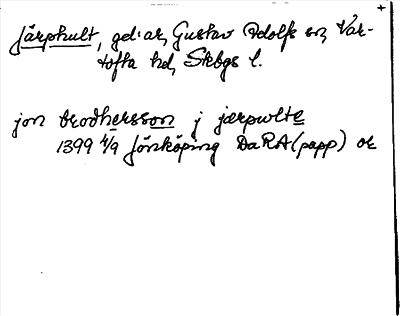 Järphult, gd. ar, Gustav Adolfs sn, Var-
tofta hd, Skbgs l.
jon brodhersson j jærpwlte
1399 4/9 Jönköping DaRA (papp) or